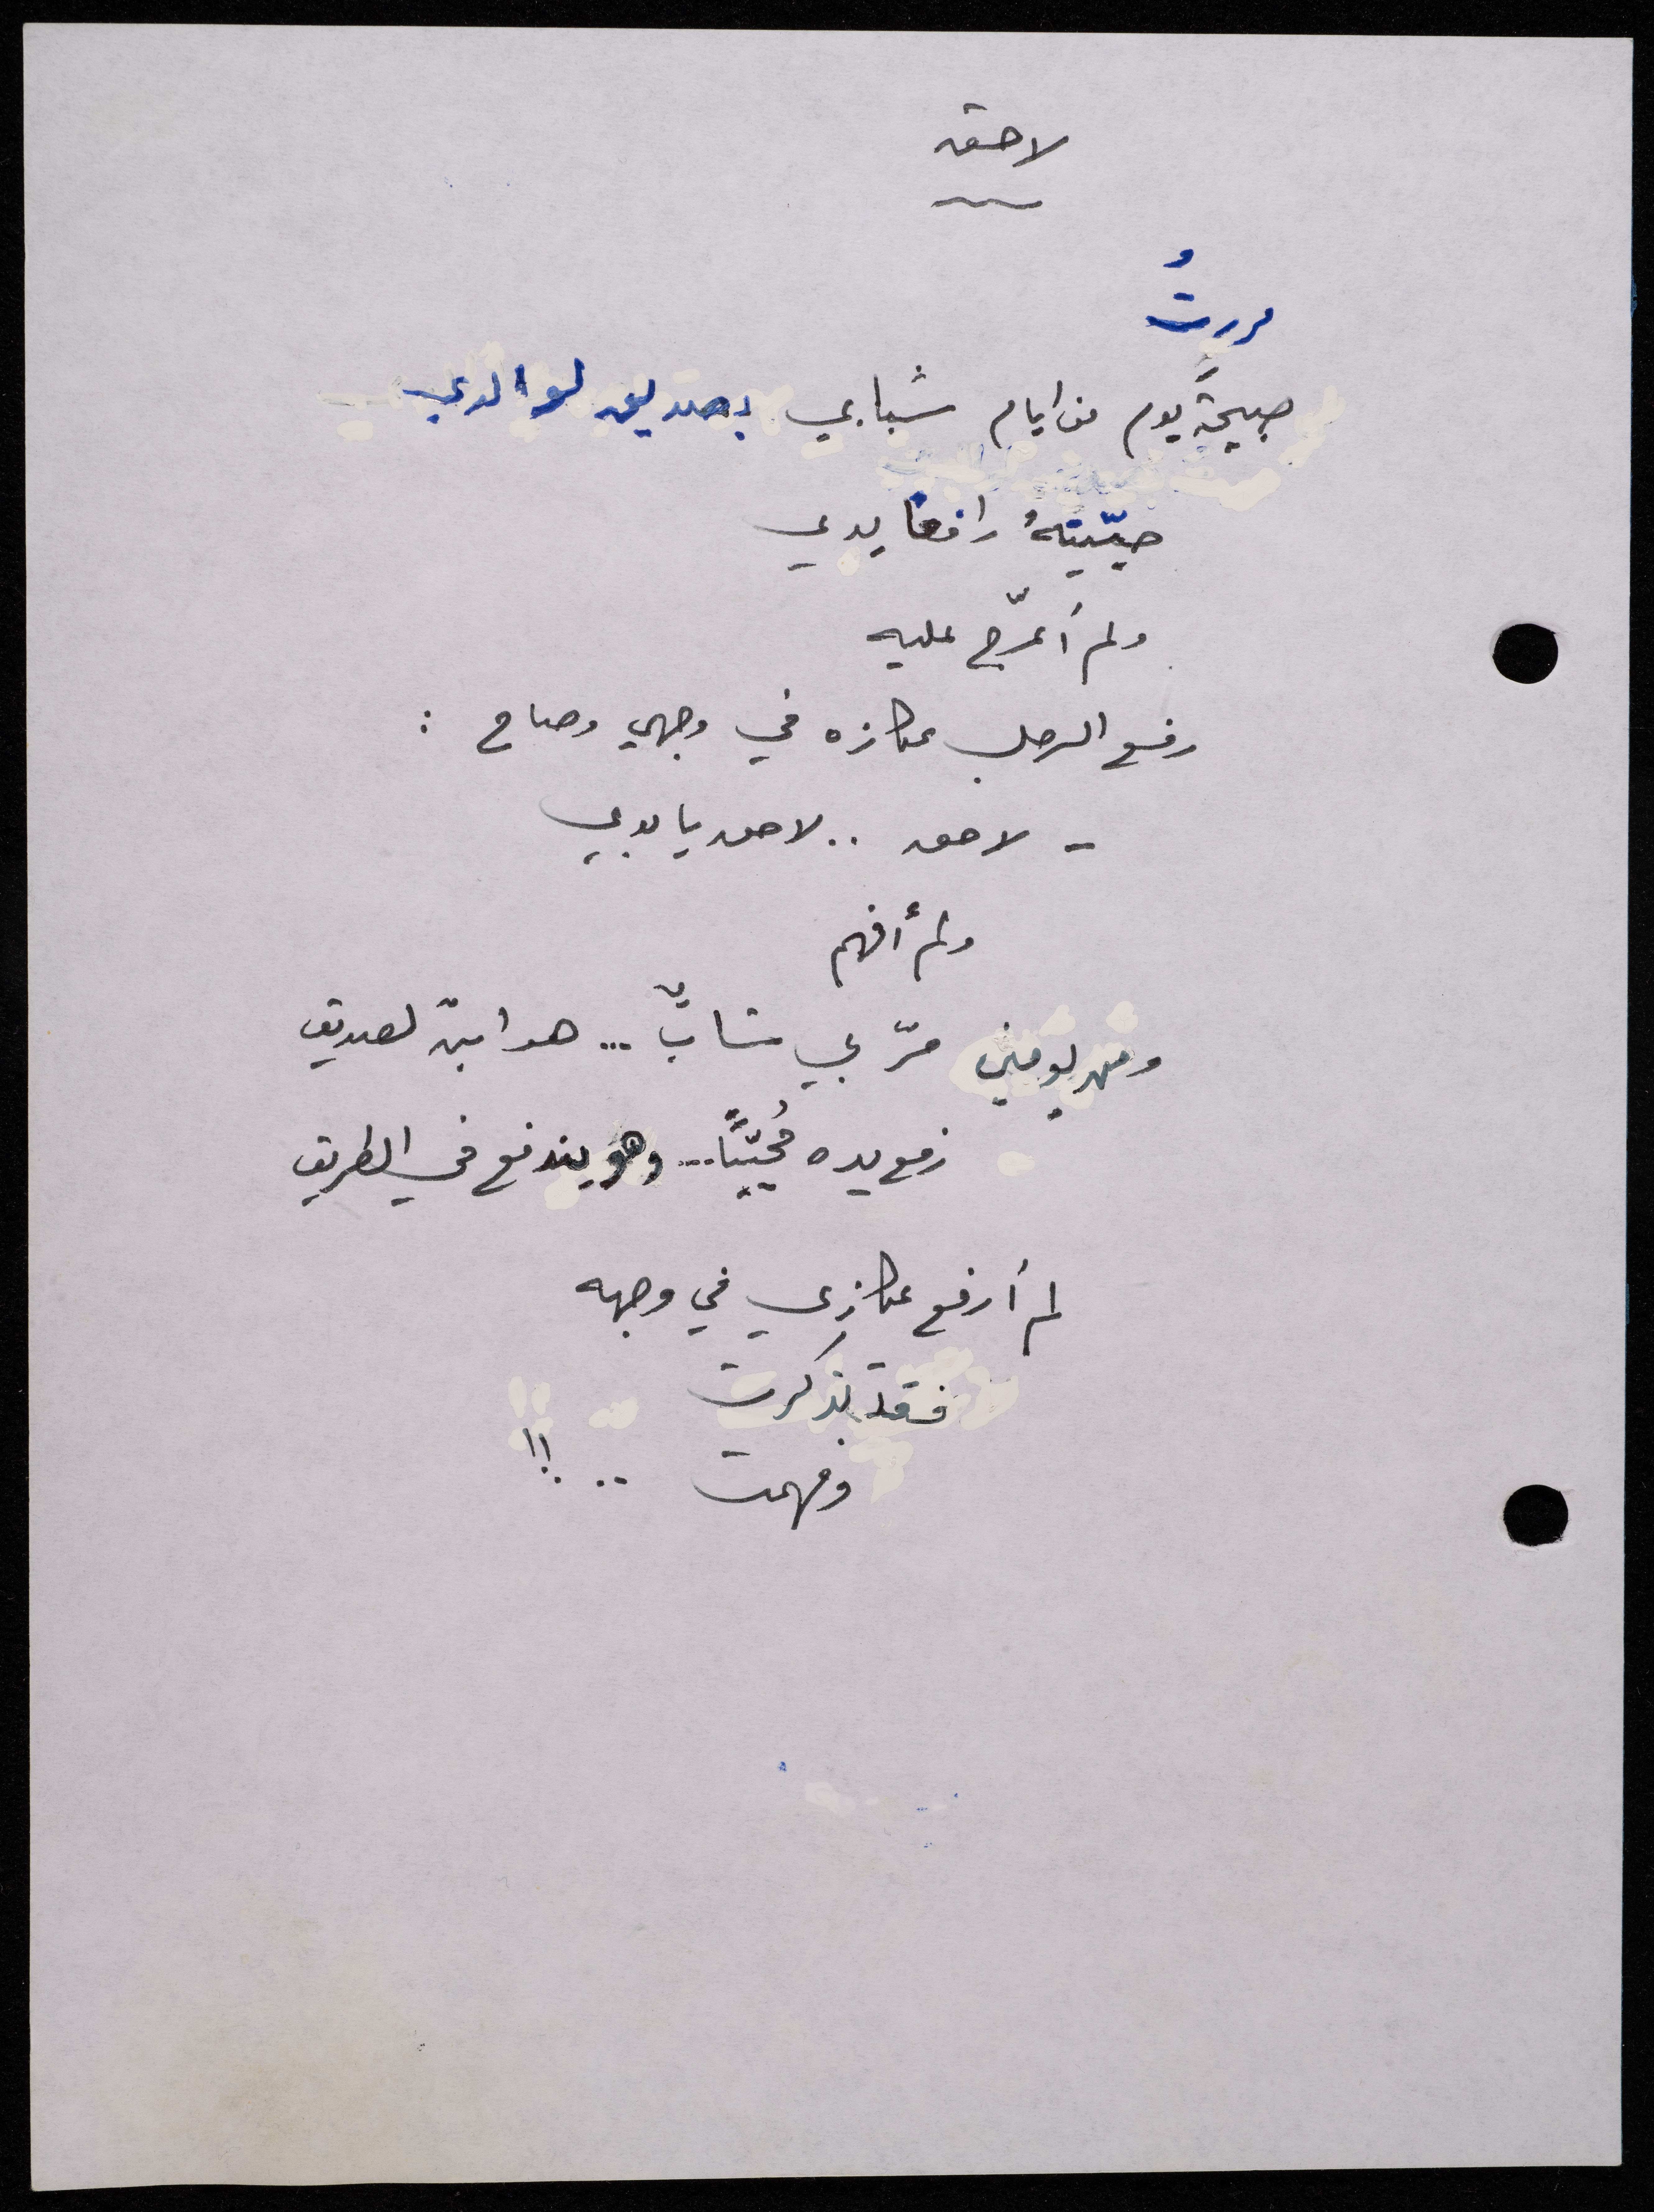 لاحق
مررتُ
صبيحةَ يوم من ايام شبابي بصديق لوالدي
حيّيتهُ رافعا يدي
ولم أعرّج عليه
رفع الرجل عكازه في وجهي وصاح :
- لاحق .. لاحق يا بوي
ولم أفهم
ومن يومين مرّ بي شابّ ... هو ابن لصديق
رفع يده مُحيّيًا ... وهو يندفع في الطريق
لم أرفع عكازي في وجهه
فقد تذكرت
وفهمت .. !!